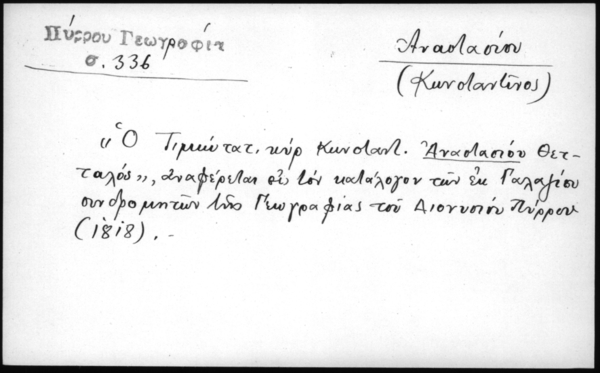 Πύρρου Γεωγραφία
σ. 336
Ἀναστασίου
(Κωνσταντῖνος)
"Ὁ Τιμιώτατ. κὺρ Κωνσταντ. Ἀναστασίου Θετ-
ταλός", ἀναφέρεται εἰς τὸν κατάλογον τῶν ἐκ Γαλαζίου
συνδρομητῶν τῆς Γεωγραφίας τοῦ Διονυσίου Πύρρου
(1818). -